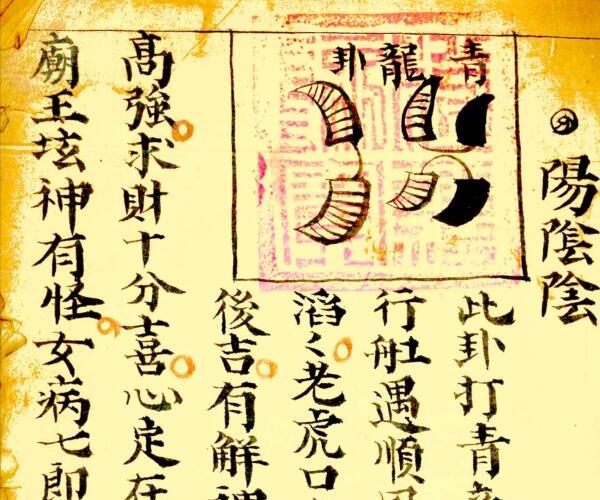 陽陰陰
青龍卦
此卦打青
行船遇順
滔〻老虎口
後吉有解
高強求財十分喜心定在
廟王坛神有怪女病七即